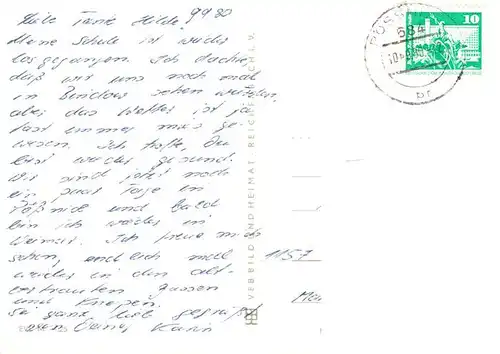 Liebe Tante Hilde! 9.9.80
Meine Schule ist wieder
losgegangen. Ich dachte,
daß wir uns noch mal
in sehen würden,
aber das Wetter ist ja
fast immer mies ge-
wesen. Ich hoffe, Du
bist wieder gesund.
Wir sind jetzt noch
ein paar Tage in
Pößnick und bald
bin ich wieder in
Weimar. Ich freue mich
schon, endlich mal
wieder in den alt-
vertrauten Gassen
und Kneipen.
Sei ganz lieb gegrüßt
von Karin
VEB BILD UND HEIMAT REICHENBACH I. V.
684
10
br
1157